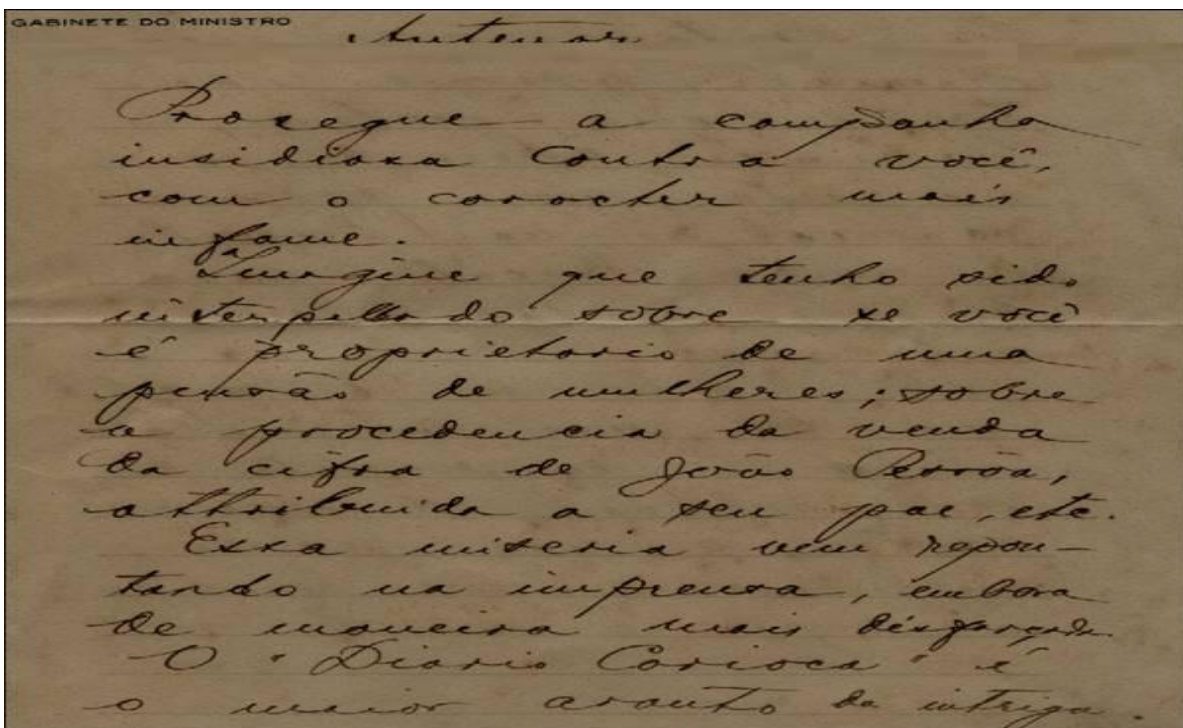 GABINETE DO MINISTRO
Antenor
Prosegue a campanha
insidiosa contra você,
com o caracter mais
infame.
Imagine que tenho sido
interpellado sobre se você
é proprietario de uma
pensão de mulheres; sobre
a procedencia da venda
da cifra de João Pessôa,
attribuida a seu pae, etc.
Essa miseria vem repon-
tando na imprensa, embora
de maneira mais disfarçada.
O "Diario Carioca" é
o maior arauto da intriga.